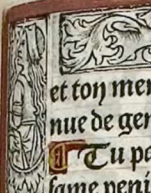 et toy mer
nue de gen
Tu pa
fame peni